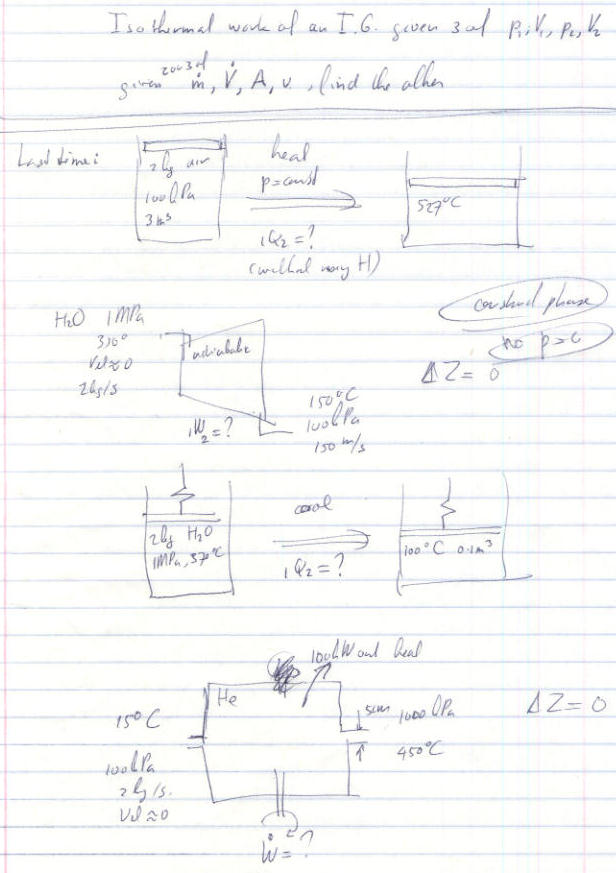 Isothermal work of an I.G. given 3 of p₁, V₁, p₂, V₂
given 2 or 3 of ṁ, V̇, A, v, find the other
Last time:
2 kg air
100 kPa
3 m³
heat
p=const
₁Q₂ = ?
(without using H)
527°C
H₂O 1MPa
Vel ≈ 0
2 kg/s
adiabatic
₁W₂ = ?
150°C
100 kPa
150 m/s
phase
no p=c
ΔZ = 0
2 kg H₂O
1MPa, 370°C
cool
₁Q₂ = ?
100°C 0.1m³
100kW out heat
He
15°C
100kPa
2 kg/s.
Vel ≈ 0
5cm
1000 kPa
450°C
ΔZ = 0
Ẇ = ?